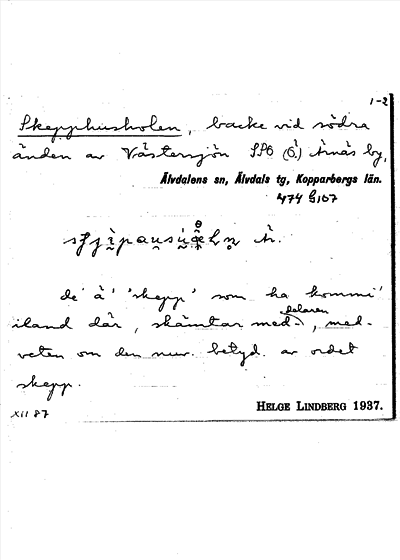 1-2
Skepphusholen, backe vid södra
änden av Västersjön SSO (Ö.) Åsnäs by,
Älvdalens sn, Älvdals tg, Kopparbergs län.
474 G107
de' ä' 'skepp' som ha kommi'
iland där, skämtar med-delaren, med-
veten om den nuv. betyd. av ordet
skepp.
XII 87
HELGE LINDBERG 1937.